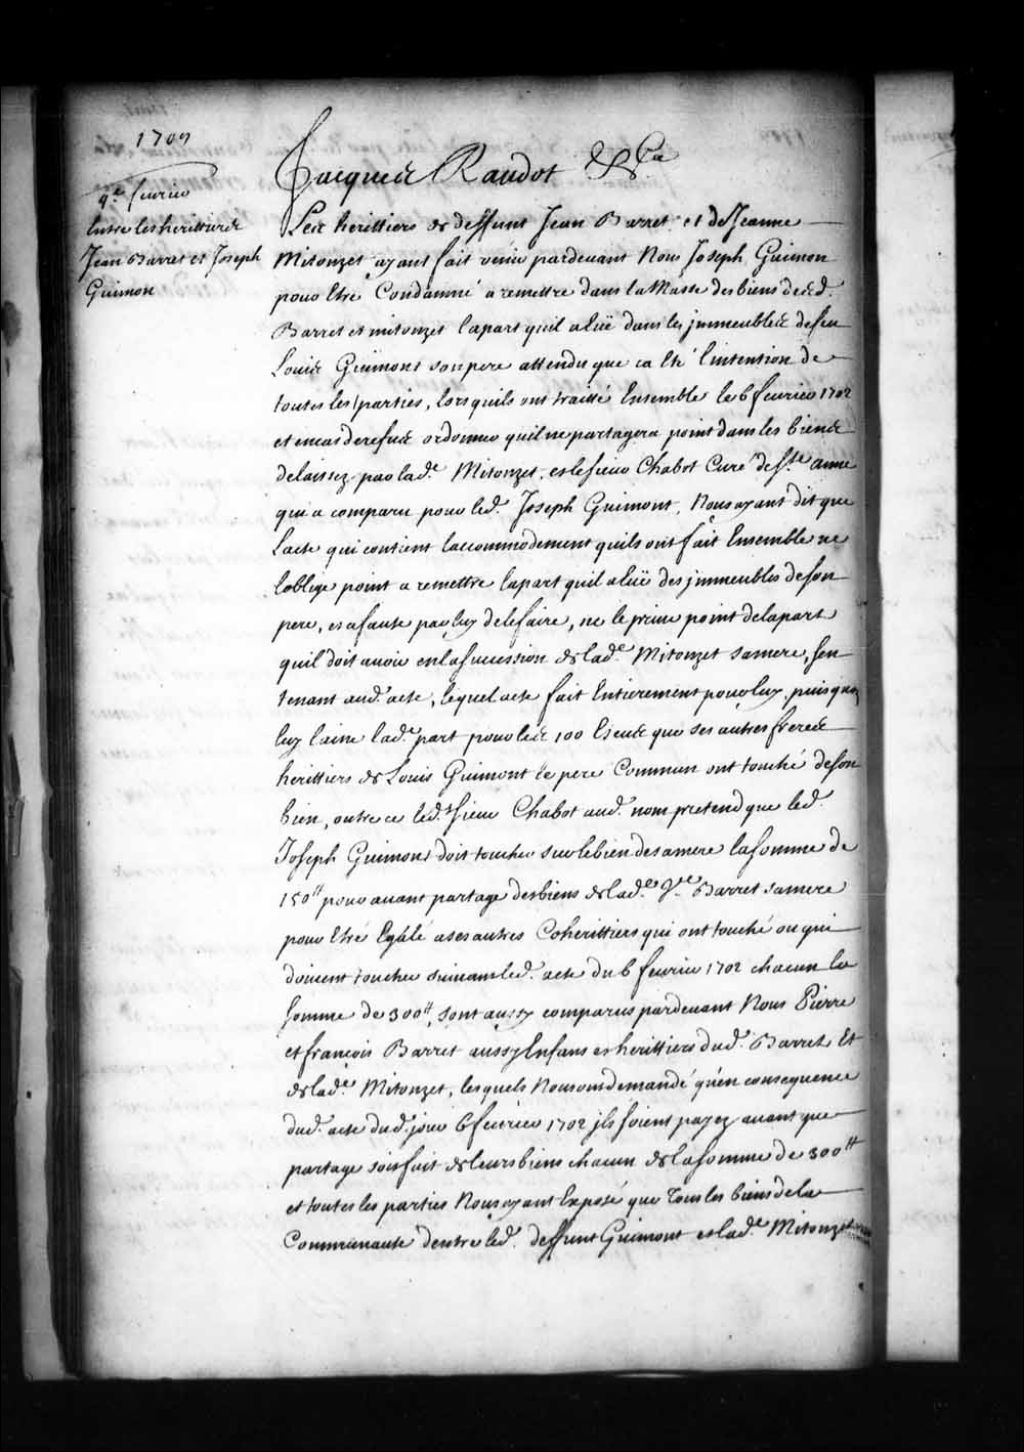 1709
9e. fevrier
Entre les herittiers de
Jean Barret et Joseph
Guimon
Jacques Raudot &ca
Les herittiers de deffunt Jean Barret et de Jeanne
Mitonzet ayant fait venir pardevant Nous Joseph Guimon
pour Etre Condamné a remettre dans la Masse des biens desd.
Barret et mitonzet la part quil a Eüe dans les jmmeubles de feu
Louis Guimont son pere attendu que ca Eté lintention de
toutes les parties, lors quils ont traitté Ensemble le 6 fevrier 1702
et en cas de refus ordonner quil ne partagera point dans les biens
delaissez par lad.e Mitonzet, et le sieur Chabot Curé de Ste anne
qui a comparu pour led. Joseph Guimont, Nous ayant dit que
Lacte qui contient laccommodement quils ont fait Ensemble ne
loblige point a remettre la part quil a Eüe des jmmeubles de son
pere, et a faute par luy de le faire, ne le prive point de la part
quil doit avoir en la succession de lad.e Mitonzet sa mere, sen
tenant aud. acte, lequel acte fait Entierement pour luy, puis que
luy laisse lad.e part pour les 100 Escus que ses autres freres
herittiers de Louis Guimont le pere Commun ont touché de son
bien, outre ce led. sieur Chabot aud. nom pretend que led.
Joseph Guimont doit toucher sur le bien de sa mere la somme de
150tt pour avant partage des biens de lad.e Barret sa mere
pour Etre Egalé a ses autres Coherittiers qui ont touché ou qui
doivent toucher suivant led. acte du 6 fevrier 1702 chacun la
somme de 300tt, sont aussy comparus pardevant Nous Pierre
et francois Barret aussy Enfans et herittiers dud. Barret Et
de lad.e Mitonzet, lesquels Nous ont demandé qu'en consequence
dud. acte dud. jour 6 fevrier 1702 jls soient payez avant que
partage soit fait de leurs biens chacun de la somme de 300tt
et toutes les parties Nous ayant Exposé que Tous les biens de la
Communauté d'entre led. deffunt Guimont et lad.e Mitonzet